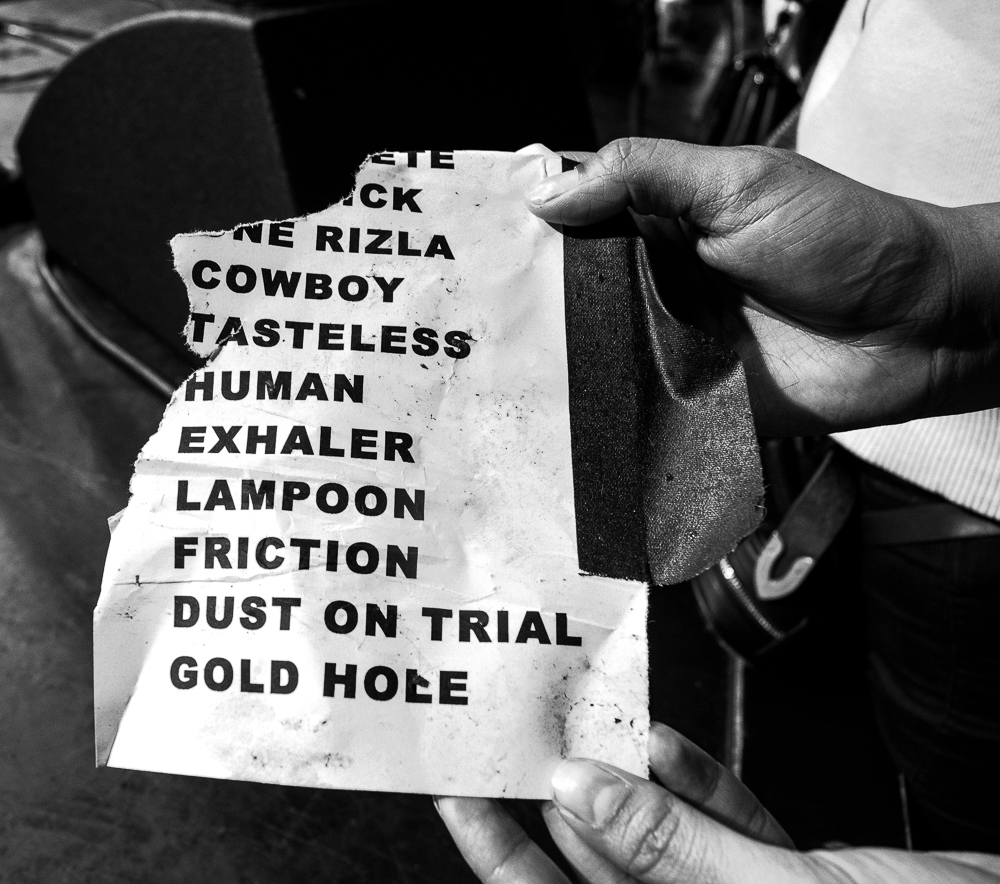 ETE
ICK
ONE RIZLA
COWBOY
TASTELESS
HUMAN
EXHALER
LAMPOON
FRICTION
DUST ON TRIAL
GOLD HOLE